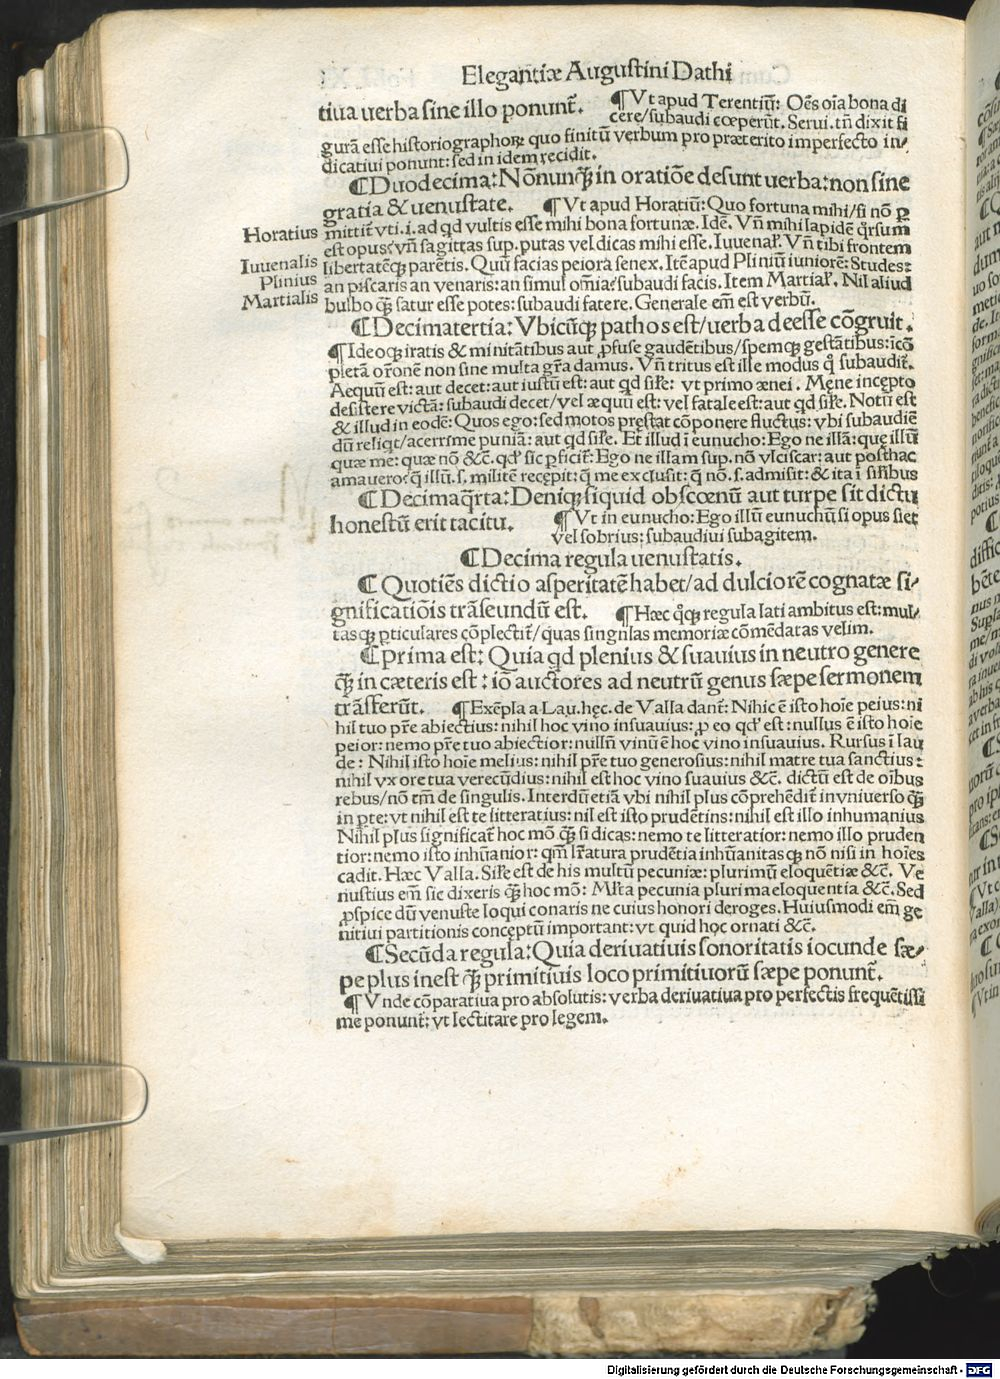 Elegantiæ Augustini Dathi
tiua uerba sine illo ponunt̃.
¶ Vt apud Terentiũ: Oẽs oĩa bona di
cere/subaudi cœperũt. Serui. tñ dixit fi
gurã esse historiographoꝝ quo finitũ verbum pro præterito imperfecto in/
dicatiui ponunt: sed in idem recidit.
¶ Duodecima: Nõnunꝗ̃ in oratiõe desunt uerba: non sine
gratia & uenustate.
¶ Vt apud Horatiũ: Quo fortuna mihi/si nõ ꝑ
Horatius
mittit̃ vti. i. ad qd vultis esse mihi bona fortunæ. Idẽ. Vñ mihi lapidẽ q̃rsum
est opus: vñ sagittas sup. putas vel dicas mihi esse. Iuuenal̃. Vñ tibi frontem
Iuuenalis
libertatẽqꝫ parẽtis. Quũ facias peiora senex. Itẽ apud Pliniũ iuniorẽ: Studes:
Plinius
an piscaris an venaris: an simul oĩa: subaudi facis. Item Martial̃. Nil aliud
Martialis
bulbo ꝗ̃ satur esse potes: subaudi fatere. Generale em̃ est verbũ.
¶ Decimatertia: Vbicũqꝫ pathos est/uerba deesse cõgruit.
¶ Ideoqꝫ iratis & minitãtibus aut ꝓfuse gaudẽtibus/spemqꝫ gestãtibus: ĩcõ
pletã or̃onẽ non sine multa gr̃a damus. Vñ tritus est ille modus q̃ subaudit̃.
Aequũ est: aut decet: aut iustũ est: aut qd sil̃e: vt primo ænei. Mene incepto
desistere victã: subaudi decet/vel æquũ est: vel fatale est: aut qd sil̃e. Notũ est
& illud in eodẽ: Quos ego: sed motos præstat cõponere fluctus: vbi subaudiẽ
dũ reliqt/acerrime puniã: aut qd sil̃e. Et illud ĩ eunucho: Ego ne illã: quę illũ
quæ me: quæ nõ &c̃. qd̃ sic ꝑficit̃: Ego ne illam sup. nõ vlciscar: aut posthac
amauero: q̃ illũ. s. militẽ recepit: q̃ me exclusit: q̃ nõ. s. admisit: & ita ĩ sil̃ibus
¶ Decimaq̃rta: Deniqꝫ siquid obscœnũ aut turpe sit dictu
honestũ erit tacitu.
¶ Vt in eunucho: Ego illũ eunuchũ si opus siet
vel sobrius: subaudiui subagitem.
¶ Decima regula uenustatis.
¶ Quotiẽs dictio asperitatẽ habet/ad dulciorẽ cognatæ si/
gnificatiõis trãseundũ est.
¶ Hæc q̃qꝫ regula lati ambitus est: mul/
tasqꝫ ꝑticulares cõplectit̃/quas singulas memoriæ cõmẽdatas velim.
¶ Prima est: Quia qd plenius & suauius in neutro genere
ꝗ̃ in cæteris est: iõ auctores ad neutrũ genus sæpe sermonem
trãsferũt.
¶ Exẽpla a Lau. hęc. de Valla dant̃: Nihic ẽ isto hoĩe peius: ni
hil tuo pr̃e abiectius: nihil hoc vino insuauius: ꝓ eo qd̃ est: nullus ẽ isto hoĩe
peior: nemo pr̃e tuo abiectior: nullũ vinũ ẽ hoc vino insuauius. Rursus ĩ lau
de: Nihil isto hoĩe melius: nihil pr̃e tuo generosius: nihil matre tua sanctius:
nihil vxore tua verecũdius: nihil est hoc vino suauius &c̃. dictũ est de oĩbus
rebus/nõ tm̃ de singulis. Interdũ etiã vbi nihil plus cõprehẽdit̃ in vniuerso ꝗ̃
in ꝑte: vt nihil est te litteratius: nil est isto prudẽtius: nihil est illo inhumanius
Nihil plus significat̃ hoc mõ ꝗ̃ si dicas: nemo te litteratior: nemo illo pruden
tior: nemo isto inhũanior: qm̃ lr̃atura prudẽtia inhũanitasqꝫ nõ nisi in hoĩes
cadit. Hæc Valla. Sil̃e est de his multũ pecuniæ: plurimũ eloquẽtiæ &c̃. Ve
nustius em̃ sic dixeris ꝗ̃ hoc mõ: Ml̃ta pecunia plurima eloquentia &c̃. Sed
ꝓspice dũ venuste loqui conaris ne cuius honori deroges. Huiusmodi em̃ ge
nitiui partitionis conceptũ important: vt quid hoc ornati &c̃.
¶ Secũda regula: Quia deriuatiuis sonoritatis iocunde sæ/
pe plus inest ꝗ̃ primitiuis loco primitiuorũ sæpe ponunt̃.
¶ Vnde cõparatiua pro absolutis: verba deriuatiua pro perfectis frequẽtissi
me ponunt̃: vt lectitare pro legem.
Digitalisierung gefördert durch die Deutsche Forschungsgemeinschaft - DFG